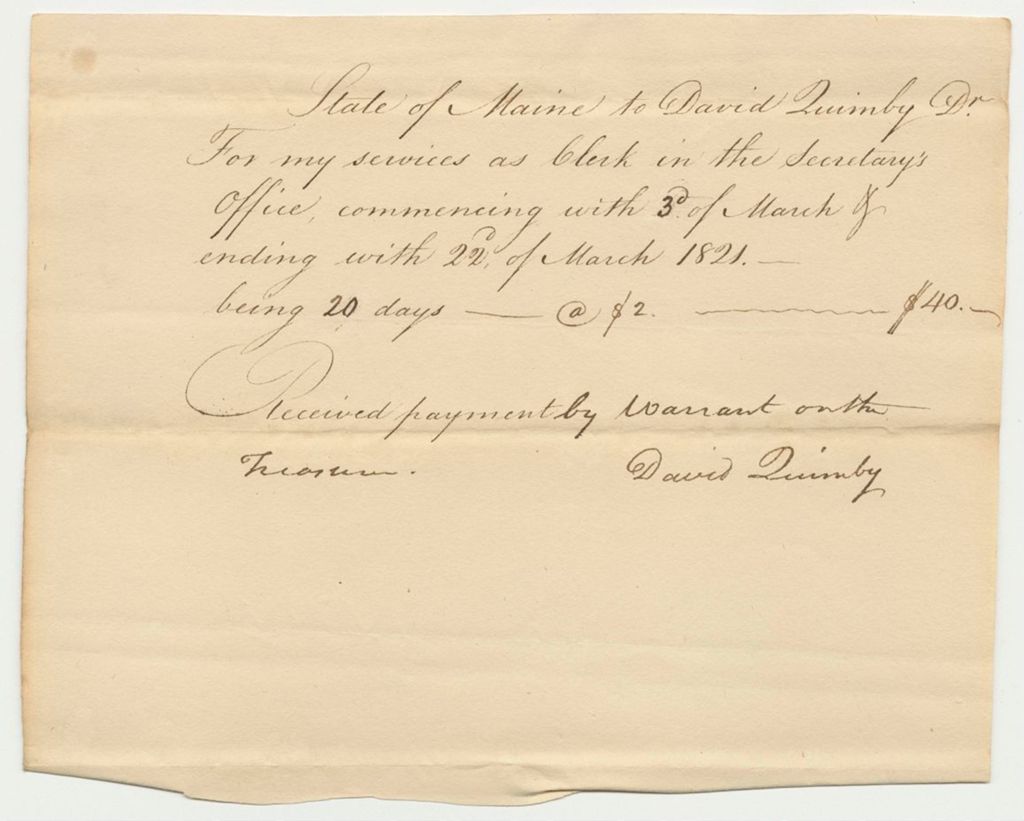 State of Maine to David Quimby Dr.
For my services as Clerk in the Secretary's
Office, commencing with 3d. of March &
ending with 22d, of March 1821. —
being 20 days — @ $2. — $40. —
Received payment by Warrant on the
Treasurer.
David Quimby